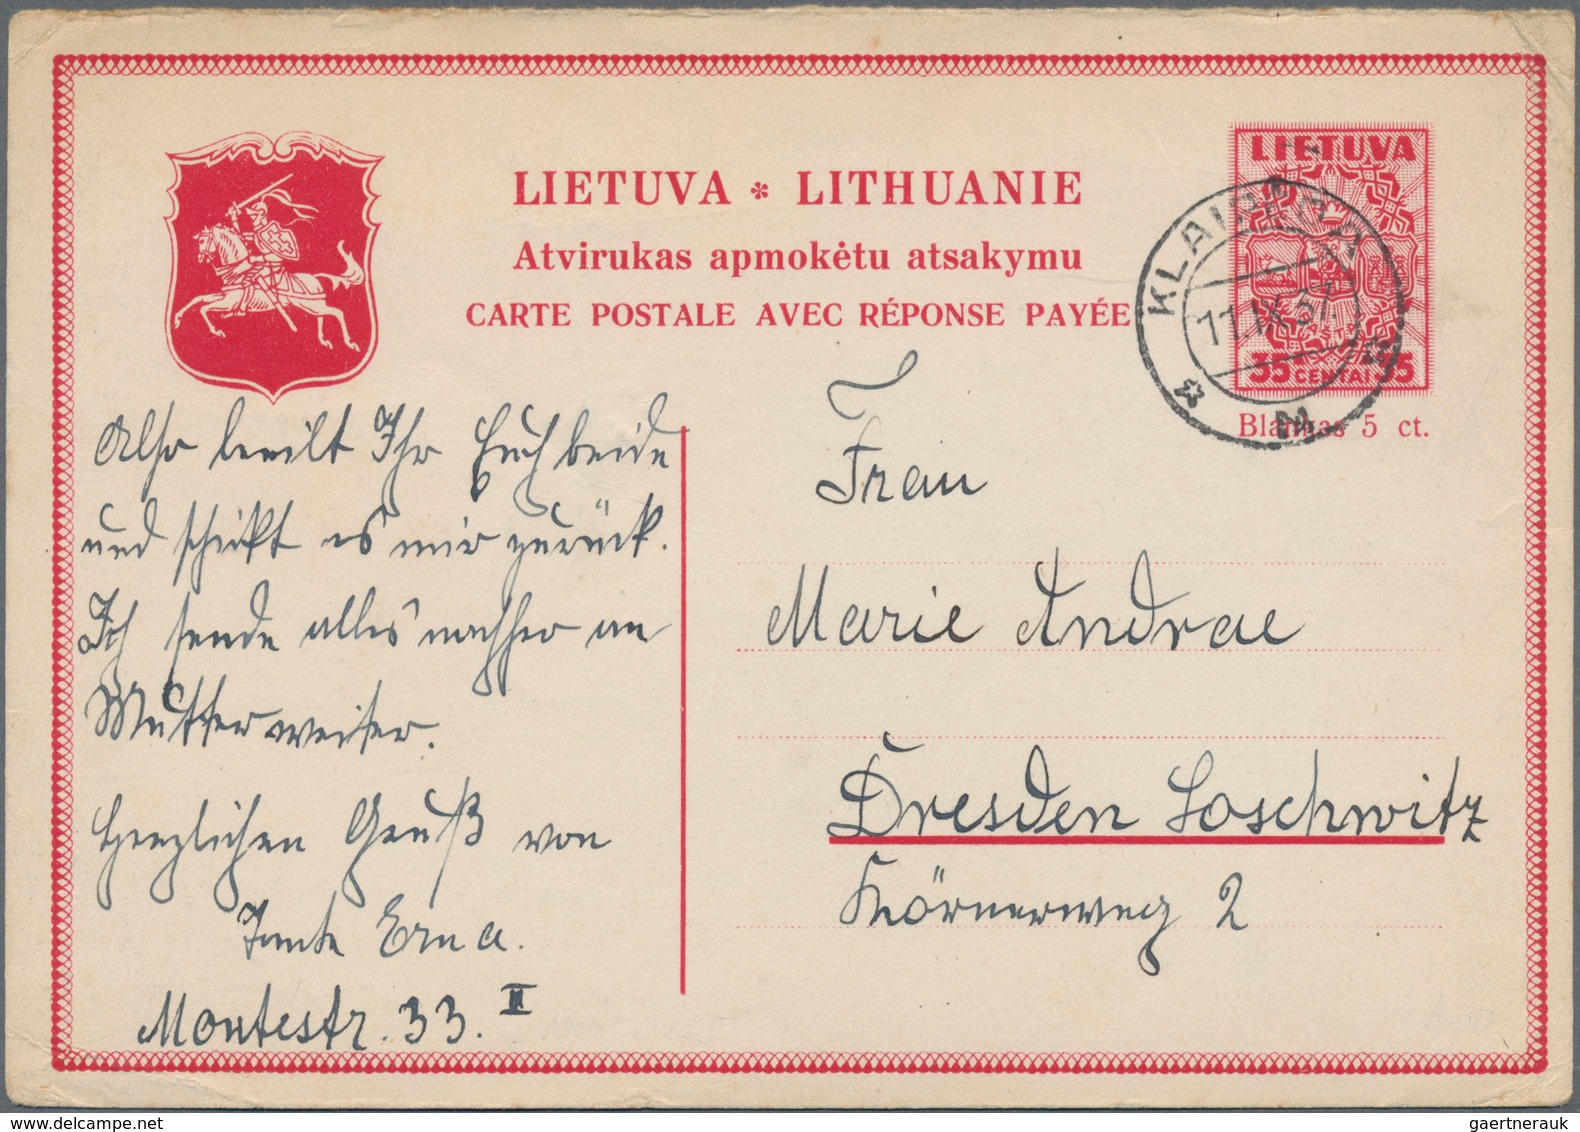 LIETUVA * LITHUANIE
Atvirukas apmokėtu atsakymu
CARTE POSTALE AVEC RÉPONSE PAYÉE
LIETUVA
35 CENTAI 35
Blankas 5 ct.
KLAIPĖDA
11.IX.37.
* M *
Also beeilt Ihr Euch beide
und schickt es mir zurück.
Ich sende alles nachher an
Mutter weiter.
Herzlichen Gruß von
Tante Erna.
Montestr. 33. II
Frau
Marie Andrae
Dresden Loschwitz
Körnerweg 2
gaertnerauk @ delcampe.net